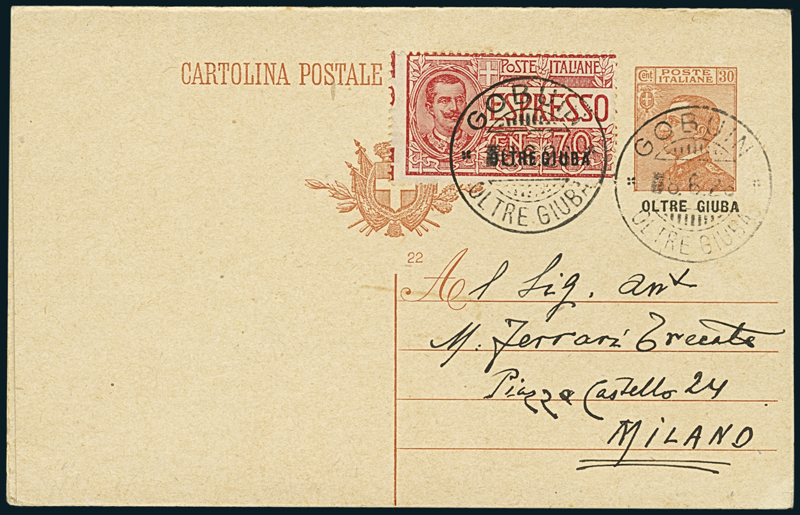 CARTOLINA POSTALE
POSTE ITALIANE
ESPRESSO
CENT. 70
OLTRE GIUBA
Cent. POSTE ITALIANE 30
OLTRE GIUBA
GOBUIN
OLTRE GIUBA
GOBUIN
OLTRE GIUBA
22
Al Sig. Ant
M. Ferrari Trecate
Piazza Castello 24
MILANO